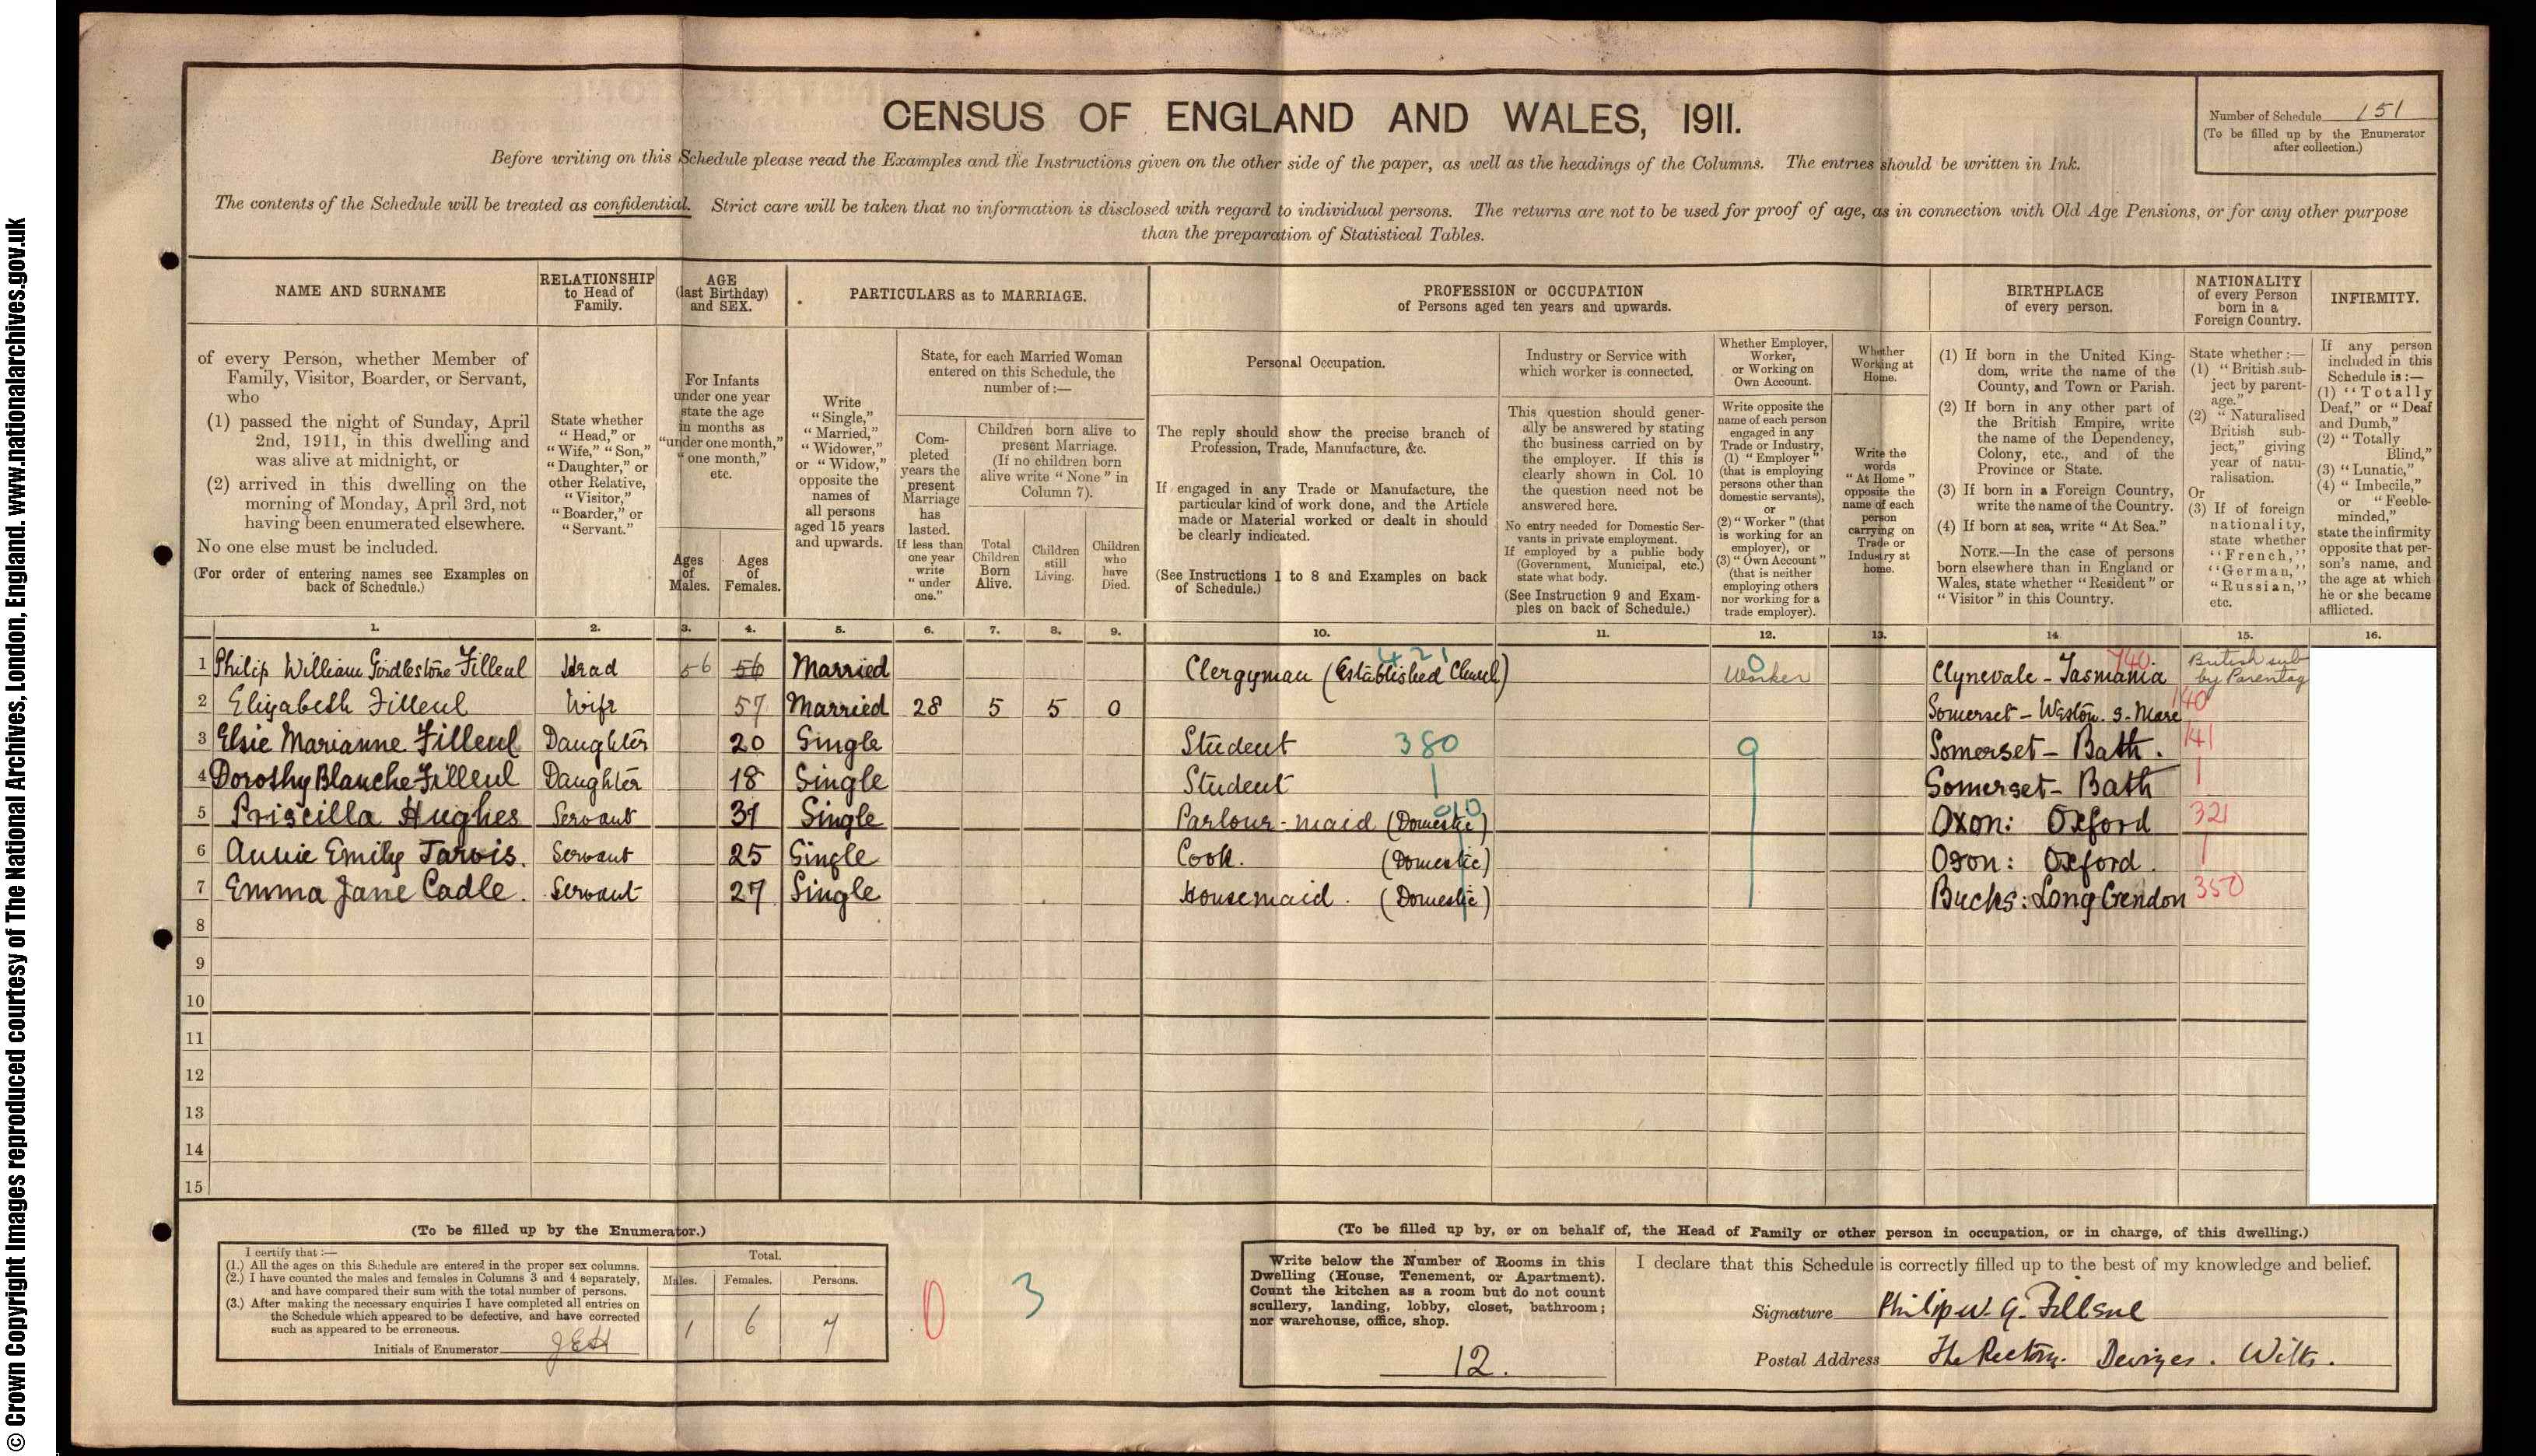 CENSUS OF ENGLAND AND WALES, 1911.
Number of Schedule 151
(To be filled up by the Enumerator
after collection.)
Before writing on this Schedule please read the Examples and the Instructions given on the other side of the paper, as well as the headings of the Columns. The entries should be written in Ink.
The contents of the Schedule will be treated as confidential. Strict care will be taken that no information is disclosed with regard to individual persons. The returns are not to be used for proof of age, as in connection with Old Age Pensions, or for any other purpose
than the preparation of Statistical Tables.
NAME AND SURNAME
of every Person, whether Member of
Family, Visitor, Boarder, or Servant,
who
(1) passed the night of Sunday, April
2nd, 1911, in this dwelling and
was alive at midnight, or
(2) arrived in this dwelling on the
morning of Monday, April 3rd, not
having been enumerated elsewhere.
No one else must be included.
(For order of entering names see Examples on
back of Schedule.)
RELATIONSHIP
to Head of
Family.
State whether
"Head," or
"Wife," "Son,"
"Daughter," or
other Relative,
"Visitor,"
"Boarder," or
"Servant."
AGE
(last Birthday)
and SEX.
For Infants
under one year
state the age
in months as
"under one month,"
"one month,"
etc.
Ages
of
Males.
Ages
of
Females.
PARTICULARS as to MARRIAGE.
Write
"Single,"
"Married,"
"Widower,"
or "Widow,"
opposite the
names of
all persons
aged 15 years
and upwards.
State, for each Married Woman
entered on this Schedule, the
number of:—
Com-
pleted
years the
present
Marriage
has
lasted.
If less than
one year
write
"under
one."
Children born alive to
present Marriage.
(If no children born
alive write "None" in
Column 7).
Total
Children
Born
Alive.
Children
still
Living.
Children
who
have
Died.
PROFESSION or OCCUPATION
of Persons aged ten years and upwards.
Personal Occupation.
The reply should show the precise branch of
Profession, Trade, Manufacture, &c.
If engaged in any Trade or Manufacture, the
particular kind of work done, and the Article
made or Material worked or dealt in should
be clearly indicated.
(See Instructions 1 to 8 and Examples on back
of Schedule.)
Industry or Service with
which worker is connected.
This question should gener-
ally be answered by stating
the business carried on by
the employer. If this is
clearly shown in Col. 10
the question need not be
answered here.
No entry needed for Domestic Ser-
vants in private employment.
If employed by a public body
(Government, Municipal, etc.)
state what body.
(See Instruction 9 and Exam-
ples on back of Schedule.)
Whether Employer,
Worker,
or Working on
Own Account.
Write opposite the
name of each person
engaged in any
Trade or Industry,
(1) "Employer"
(that is employing
persons other than
domestic servants),
or
(2) "Worker" (that
is working for an
employer), or
(3) "Own Account"
(that is neither
employing others
nor working for a
trade employer).
Whether
Working at
Home.
Write the
words
"At Home"
opposite the
name of each
person
carrying on
Trade or
Industry at
home.
BIRTHPLACE
of every person.
(1) If born in the United King-
dom, write the name of the
County, and Town or Parish.
(2) If born in any other part of
the British Empire, write
the name of the Dependency,
Colony, etc., and of the
Province or State.
(3) If born in a Foreign Country,
write the name of the Country.
(4) If born at sea, write "At Sea."
NOTE.—In the case of persons
born elsewhere than in England or
Wales, state whether "Resident" or
"Visitor" in this Country.
NATIONALITY
of every Person
born in a
Foreign Country.
State whether:—
(1) "British sub-
ject by parent-
age."
(2) "Naturalised
British sub-
ject," giving
year of natu-
ralisation.
Or
(3) If of foreign
nationality,
state whether
"French,"
"German,"
"Russian,"
etc.
INFIRMITY.
If any person
included in this
Schedule is:—
(1) "Totally
Deaf," or "Deaf
and Dumb,"
(2) "Totally
Blind,"
(3) "Lunatic,"
(4) "Imbecile,"
or "Feeble-
minded,"
state the infirmity
opposite that per-
son's name, and
the age at which
he or she became
afflicted.
1. 2. 3. 4. 5. 6. 7. 8. 9. 10. 11. 12. 13. 14. 15. 16.
1 Philip William Girdlestone Filleul Head 56 56 Married Clergyman (Established Church) 421 Worker 0 Clynevale - Tasmania 740. British sub by Parentag
2 Elizabeth Filleul Wife 57 Married 28 5 5 0 Somerset - Weston. S. Mare 140
3 Elsie Marianne Filleul Daughter 20 Single Student 380 9 Somerset - Bath. 141
4 Dorothy Blanche Filleul Daughter 18 Single Student Somerset - Bath
5 Priscilla Hughes Servant 31 Single Parlour-maid (Domestic) 010 Oxon: Oxford 321
6 Annie Emily Jarvis. Servant 25 Single Cook. (Domestic) Oxon: Oxford.
7 Emma Jane Cadle. Servant 27 Single Housemaid. (Domestic) Bucks: Long Crendon 350
8
9
10
11
12
13
14
15
(To be filled up by the Enumerator.)
I certify that:—
(1.) All the ages on this Schedule are entered in the proper sex columns.
(2.) I have counted the males and females in Columns 3 and 4 separately,
and have compared their sum with the total number of persons.
(3.) After making the necessary enquiries I have completed all entries on
the Schedule which appeared to be defective, and have corrected
such as appeared to be erroneous.
Initials of Enumerator JEH
Total.
Males. Females. Persons.
1 6 7
0 3
(To be filled up by, or on behalf of, the Head of Family or other person in occupation, or in charge, of this dwelling.)
Write below the Number of Rooms in this
Dwelling (House, Tenement, or Apartment).
Count the kitchen as a room but do not count
scullery, landing, lobby, closet, bathroom;
nor warehouse, office, shop.
12.
I declare that this Schedule is correctly filled up to the best of my knowledge and belief.
Signature Philip W. G. Filleul
Postal Address The Rectory. Devizes. Wilts.
© Crown Copyright Images reproduced courtesy of The National Archives, London, England. www.nationalarchives.gov.uk